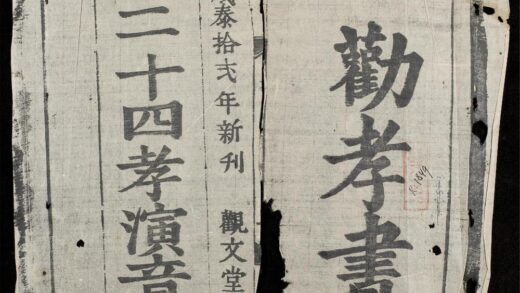 勸孝書
泰拾弍年新刊 觀文堂
二十四孝演音